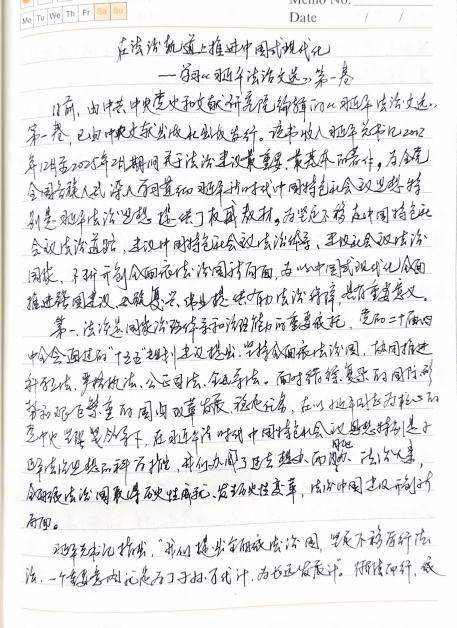 Mo Tu We Th Fr Sa Su
Memo No.
Date / /
在法治轨道上推进中国式现代化
——学习《习近平法治文选》第一卷
日前,由中共中央党史和文献研究院编辑的《习近平法治文选》
第一卷,已由中央文献出版社出版发行。该书收入习近平总书记2012
年12月至2025年2月期间关于法治建设最重要、最基本的著作。为全党
全国各族人民深入学习贯彻习近平新时代中国特色社会主义思想特
别是习近平法治思想提供了权威教材。为坚定不移走中国特色社
会主义法治道路,建设中国特色社会主义法治体系、建设社会主义法治
国家,不断开创全面依法治国新局面,为以中国式现代化全面
推进强国建设、民族复兴伟业提供有力法治保障,具有重要意义。
第一,法治是国家治理体系和治理能力的重要依托,党的二十届四
中全会通过的"十五五"规划建议提出,坚持全面依法治国,协同推进
科学立法、严格执法、公正司法、全民守法。面对错综复杂的国际形
势和艰巨繁重的国内改革发展稳定任务,在以习近平同志为核心的
党中央坚强领导下,在习近平新时代中国特色社会主义思想特别是习
近平法治思想的科学指引,我们办成了过去想办而 办 法治大事,
全面依法治国取得历史性成就、发生历史性变革,法治中国建设开创新
局面。
习近平总书记指出,"我们提出全面依法治国,坚定不移厉行法
治,一个重要意图就是为子孙万代计,为长远发展计"。